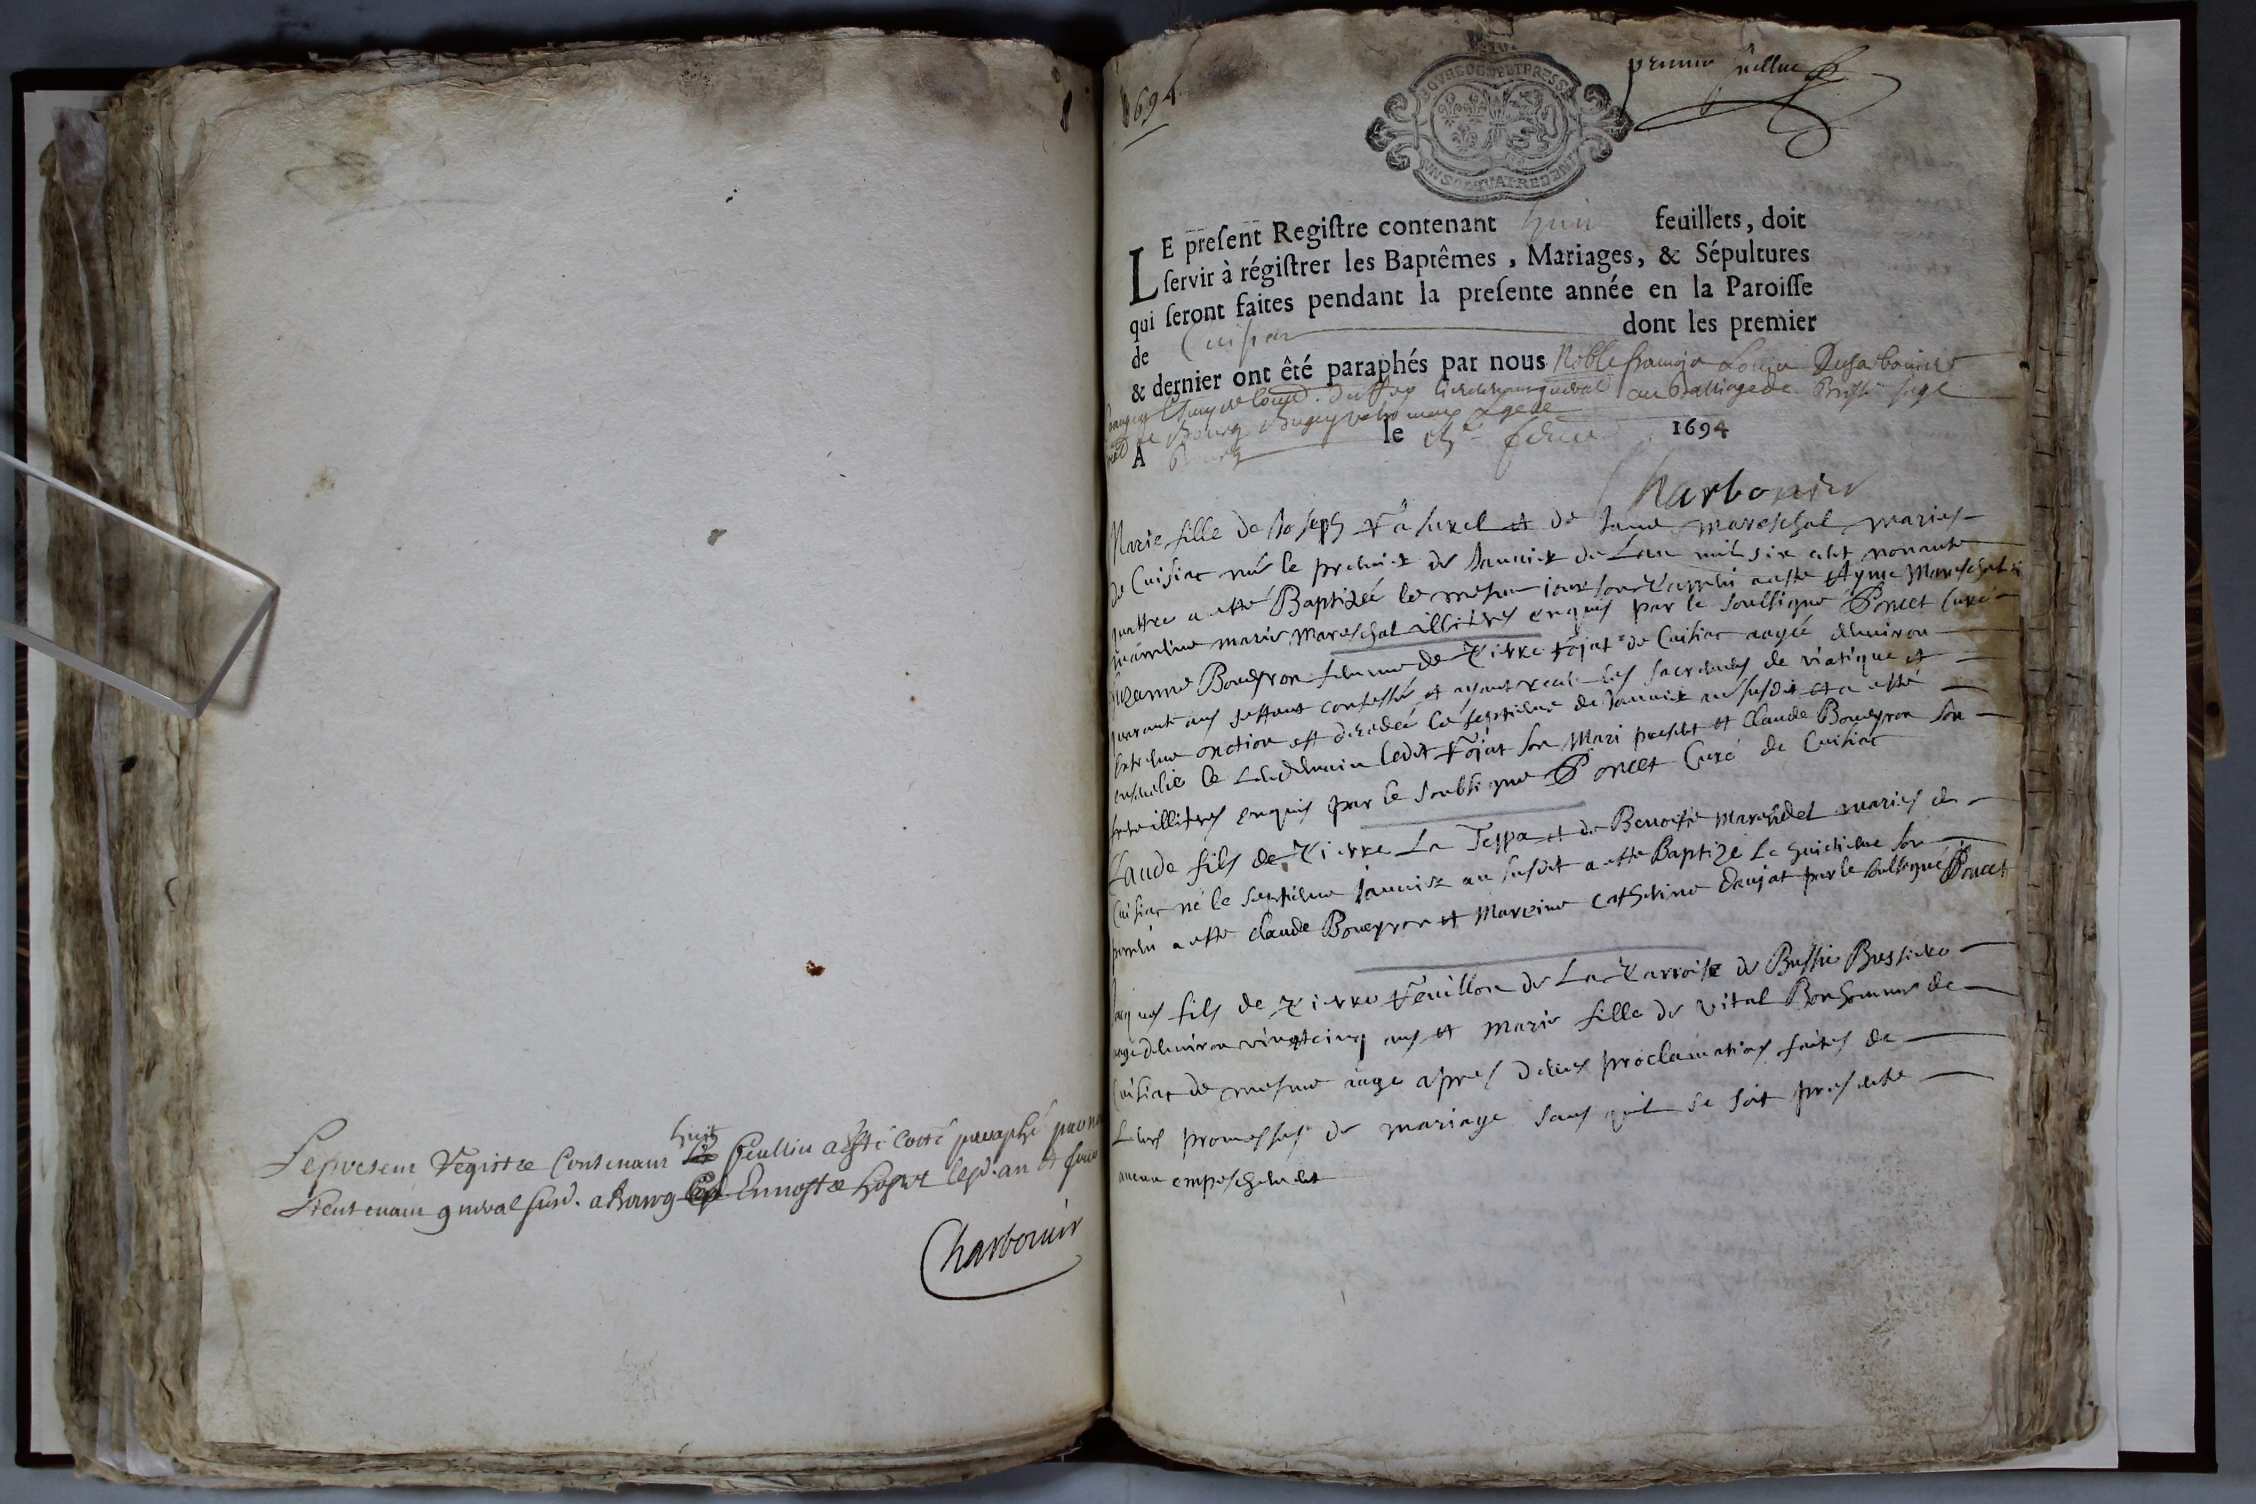 Le present Registre Contenant huit feullets a esté Cotté paraphé par no
Lieutenant general susd. a Bourg En nostre hostel lesd. an et jour
Charbonier
1694
premier feullet
BOURGOGNE ET BRESSE
UN SOL QUATRE DEN
LE present Registre contenant huit feuillets, doit
servir à régistrer les Baptêmes, Mariages, & Sépultures
qui seront faites pendant la presente année en la Paroisse
de Cuisiat dont les premier
& dernier ont êté paraphés par nous Noble françois Louis Ducharbonier
general au Balliage de Bresse
Bourg Bugey
A Bourg le 1694
Charbonier
Marie fille de Joseph et de Jane Mareschal maries
de Cuisiat née le premier de Janvier de Lan mil six cent nonante
quattre a esté Baptizée le mesme iour son parrin a esté Ayme Mareschal
marrine marie Mareschal illitres enquis par le soubsigné Poncet Curé
Suzanne Boueyron femme de Pierre de Cuisiat aagée denviron
quarante ans sestant confessée et ayant receu les sacremens de viatique et
extreme onction est decedée le septieme de Janvier an susdit et a esté
ensevelie le Lendemain ledit son Mari present et Claude Boueyron son
frere illitres enquis par le soubsigné Poncet Curé de Cuisiat
Claude fils de Pierre La Teppa et de Benoiste maries de
Cuisiat né le septieme Janvier an susdit a esté Baptizé Le huictieme son
parrin a esté Claude Boueyron et Mareine Catherine par le soubsigné Poncet
Jacques fils de Pierre de La Parroise de
aagé denviron vingtcinq ans et Marie fille de vital Bonhomme de
Cuisiat de mesme aage apres deues proclamations faites de
Leurs promesses de mariage sans quil se soit presenté
aucun empeschement